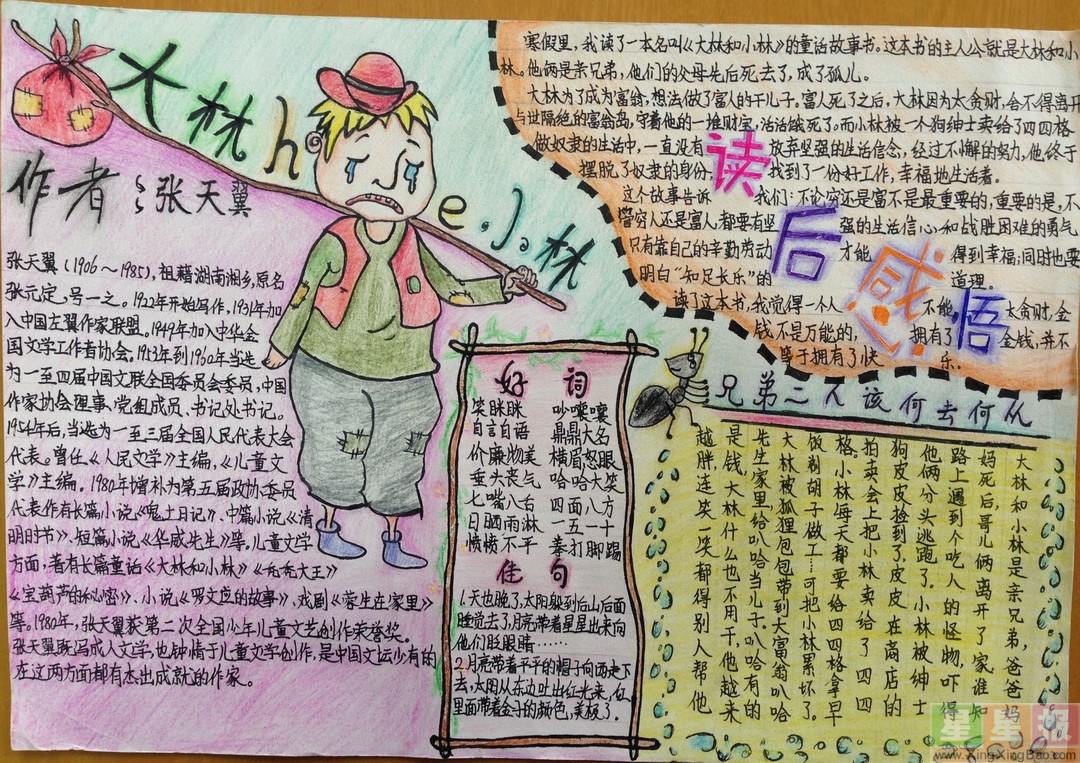 大林he小林
作者：张天翼
张天翼（1906～1985），祖籍湖南湘乡，原名
张元定，号一之。1922年开始写作，1931年加
入中国左翼作家联盟。1949年加入中华全
国文学工作者协会。1953年到1960年当选
为一至四届中国文联全国委员会委员，中国
作家协会理事、党组成员、书记处书记。
1954年后，当选为一至三届全国人民代表大会
代表。曾任《人民文学》主编，《儿童文
学》主编。1980年增补为第五届政协委员
代表作有长篇小说《鬼土日记》、中篇小说《清
明时节》、短篇小说《华威先生》等。儿童文学
方面，著有长篇童话《大林和小林》《秃秃大王》
《宝葫芦的秘密》、小说《罗文应的故事》、戏剧《蓉生在家里》
等。1980年，张天翼获第二次全国少年儿童文艺创作荣誉奖。
张天翼既写成人文学，也钟情于儿童文学创作，是中国文坛少有的
在这两方面都有杰出成就的作家。
读后感悟
寒假里，我读了一本名叫《大林和小林》的童话故事书。这本书的主人公就是大林和小
林。他俩是亲兄弟，他们的父母先后死去了，成了孤儿。
大林为了成为富翁，想法做了富人的干儿子。富人死了之后，大林因为太贪财，舍不得离开
与世隔绝的富翁岛，守着他的一堆财宝，活活饿死了。而小林被一个狗绅士卖给了四四格
做奴隶的生活中，一直没有放弃坚强的生活信念，经过不懈的努力，他终于
摆脱了奴隶的身份，找到了一份好工作，幸福地生活着。
这个故事告诉我们：不论穷还是富不是最重要的，重要的是，不
管穷人还是富人，都要有坚强的生活信心和战胜困难的勇气
只有靠自己的辛勤劳动才能得到幸福；同时也要
明白“知足长乐”的道理。
读了这本书，我觉得一个人不能太贪财，金
钱不是万能的，拥有了金钱，并不
等于拥有了快乐。
好词
笑眯眯 吵嚷嚷
自言自语 鼎鼎大名
价廉物美 横眉怒眼
垂头丧气 哈哈大笑
七嘴八舌 四面八方
日晒雨淋 一五一十
愤愤不平 拳打脚踢
佳句
1.天也晚了，太阳躲到后山后面
睡觉去了，月亮带着星星出来向
他们眨眼睛……
2.月亮带着平平的帽子向西走下
去，太阳从东边吐出红光来，红
里面带着金子的颜色，美极了。
兄弟二人该何去何从
大林和小林是亲兄弟，爸爸妈
妈死后，哥儿俩离开了家谁知
路上遇到个吃人的怪物，吓得
他俩分头逃跑了。小林被绅士
狗皮皮捡到了，皮皮在商店的
拍卖会上把小林卖给了四四
格，小林每天都要给四四格拿早
饭剃胡子做工…可把小林累坏了。
大林被狐狸包包带到大富翁叭哈
先生家里给叭哈当儿子。叭哈有的
是钱，大林什么也不用干，他越来
越胖，连笑一笑都得别人帮他
星星报
www.XingXingBao.com